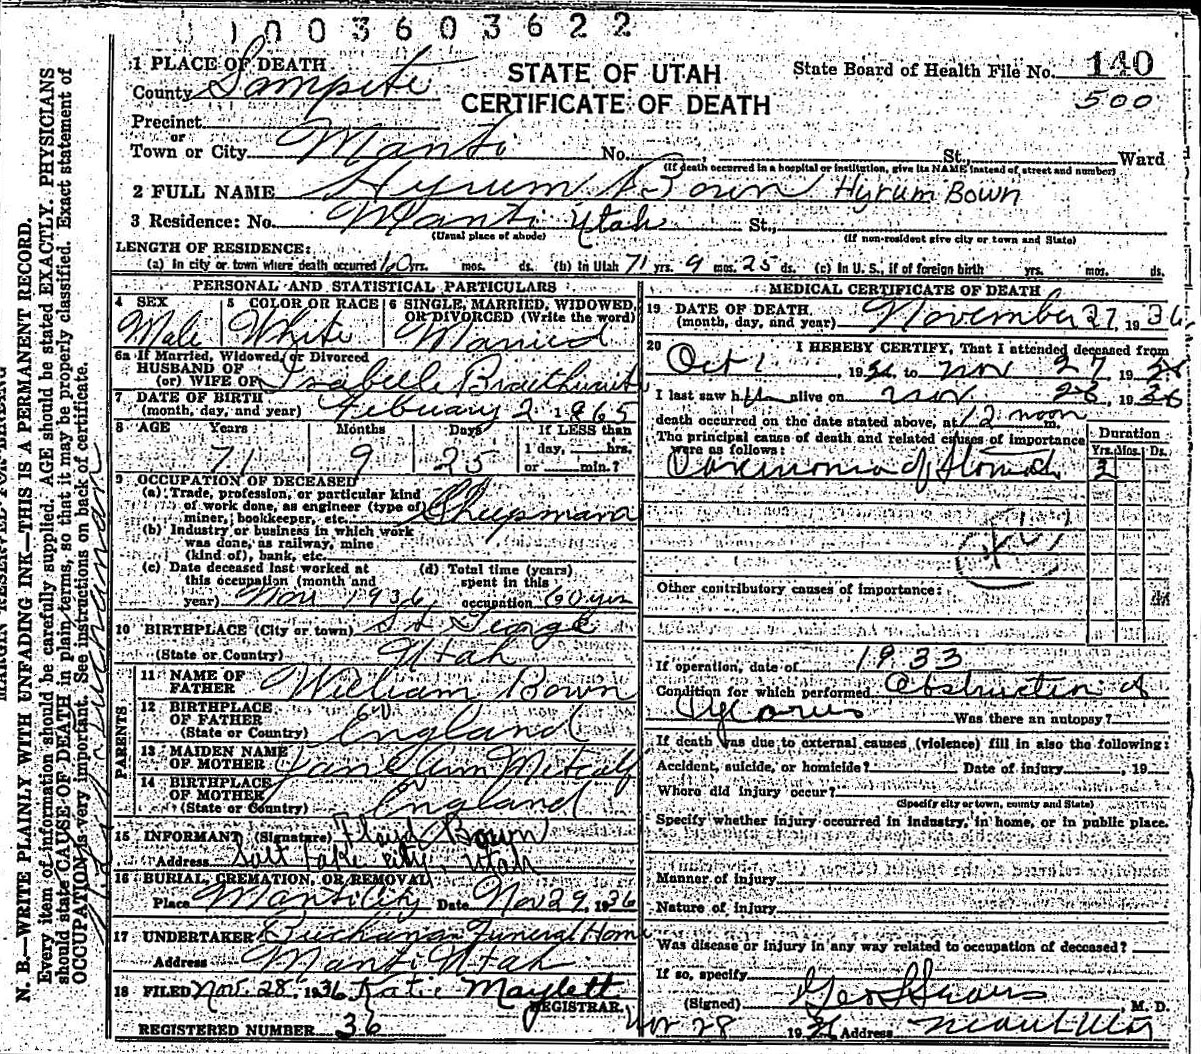 1003603622
1 PLACE OF DEATH
County Sanpete
STATE OF UTAH
CERTIFICATE OF DEATH
State Board of Health File No. 140
500
Precinct
or
Town or City Manti No. , St., Ward
(If death occurred in a hospital or institution, give its NAME instead of street and number)
2 FULL NAME Hyrum Bown Hyrum Bown
3 Residence: No. Manti Utah St.,
(Usual place of abode) (If non-resident give city or town and State)
LENGTH OF RESIDENCE:
(a) In city or town where death occurred 60 yrs. mos. ds. (b) In Utah 71 yrs. 9 mos. 25 ds. (c) In U. S., if of foreign birth yrs. mos. ds.
PERSONAL AND STATISTICAL PARTICULARS
4 SEX 5 COLOR OR RACE 6 SINGLE, MARRIED, WIDOWED,
OR DIVORCED (Write the word)
Male White Married
6a If Married, Widowed, or Divorced
HUSBAND OF
(or) WIFE OF Isabelle
7 DATE OF BIRTH
(month, day, and year) February 2 1865
8 AGE Years Months Days If LESS than
1 day, hrs.
71 9 25 or min.?
9 OCCUPATION OF DECEASED
(a) Trade, profession, or particular kind
of work done, as engineer (type of
miner, bookkeeper, etc.
(b) Industry or business in which work
was done, as railway, mine
(kind of), bank, etc.
(c) Date deceased last worked at
this occupation (month and
year) Nov 1936
(d) Total time (years)
spent in this
occupation 60 yrs
10 BIRTHPLACE (City or town) St George
(State or Country) Utah
PARENTS
11 NAME OF
FATHER William Bown
12 BIRTHPLACE
OF FATHER
(State or Country) England
13 MAIDEN NAME
OF MOTHER Jane Ann Metcalf
14 BIRTHPLACE
OF MOTHER
(State or Country) England
15 INFORMANT (Signature) Floyd Bown
Address Salt Lake City, Utah
16 BURIAL, CREMATION, OR REMOVAL
Place Manti City Date Nov 29, 1936
17 UNDERTAKER Buchanan Funeral Home
Address Manti Utah
18 FILED Nov. 28 1936 Katie Maylett
REGISTRAR.
REGISTERED NUMBER 36
MEDICAL CERTIFICATE OF DEATH
19 DATE OF DEATH
(month, day, and year) November 27, 1936
20 I HEREBY CERTIFY, That I attended deceased from
Oct 1, 19 to Nov 27 1936
I last saw h alive on Nov. 1936
death occurred on the date stated above, at 12 noon m.
The principal cause of death and related causes of importance
were as follows:
Duration
Yrs. Mos. Ds.
Carcinoma of Stomach 3
Other contributory causes of importance:
If operation, date of 1933
Condition for which performed Obstruction of
Pylorus Was there an autopsy?
If death was due to external causes (violence) fill in also the following:
Accident, suicide, or homicide? Date of injury , 19
Where did injury occur?
(Specify city or town, county and State)
Specify whether injury occurred in industry, in home, or in public place.
Manner of injury
Nature of injury
Was disease or injury in any way related to occupation of deceased?
If so, specify
(Signed) Geo , M. D.
Nov 28 1936 Address Manti Utah
N. B.—WRITE PLAINLY WITH UNFADING INK—THIS IS A PERMANENT RECORD.
Every item of information should be carefully supplied. AGE should be stated EXACTLY. PHYSICIANS
should state CAUSE OF DEATH in plain terms, so that it may be properly classified. Exact statement of
OCCUPATION is very important. See instructions on back of certificate.